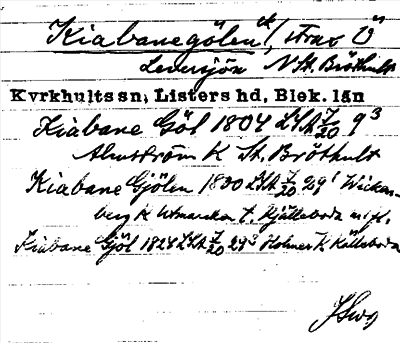 Kiabanegölen / strax V
Levrasjön N St. Bröthult
Kyrkhults sn, Listers hd, Blek. län
Kiabane Göl 1804 LSA 9³
Almström K St. Bröthult
Kiabane Gjölen 1800 LSA 29¹ Wickenberg
K Utmarken t. Kjälleboda m fl.
Kiabane Göl 1824 LSA 29³ Holmer K Källeboda